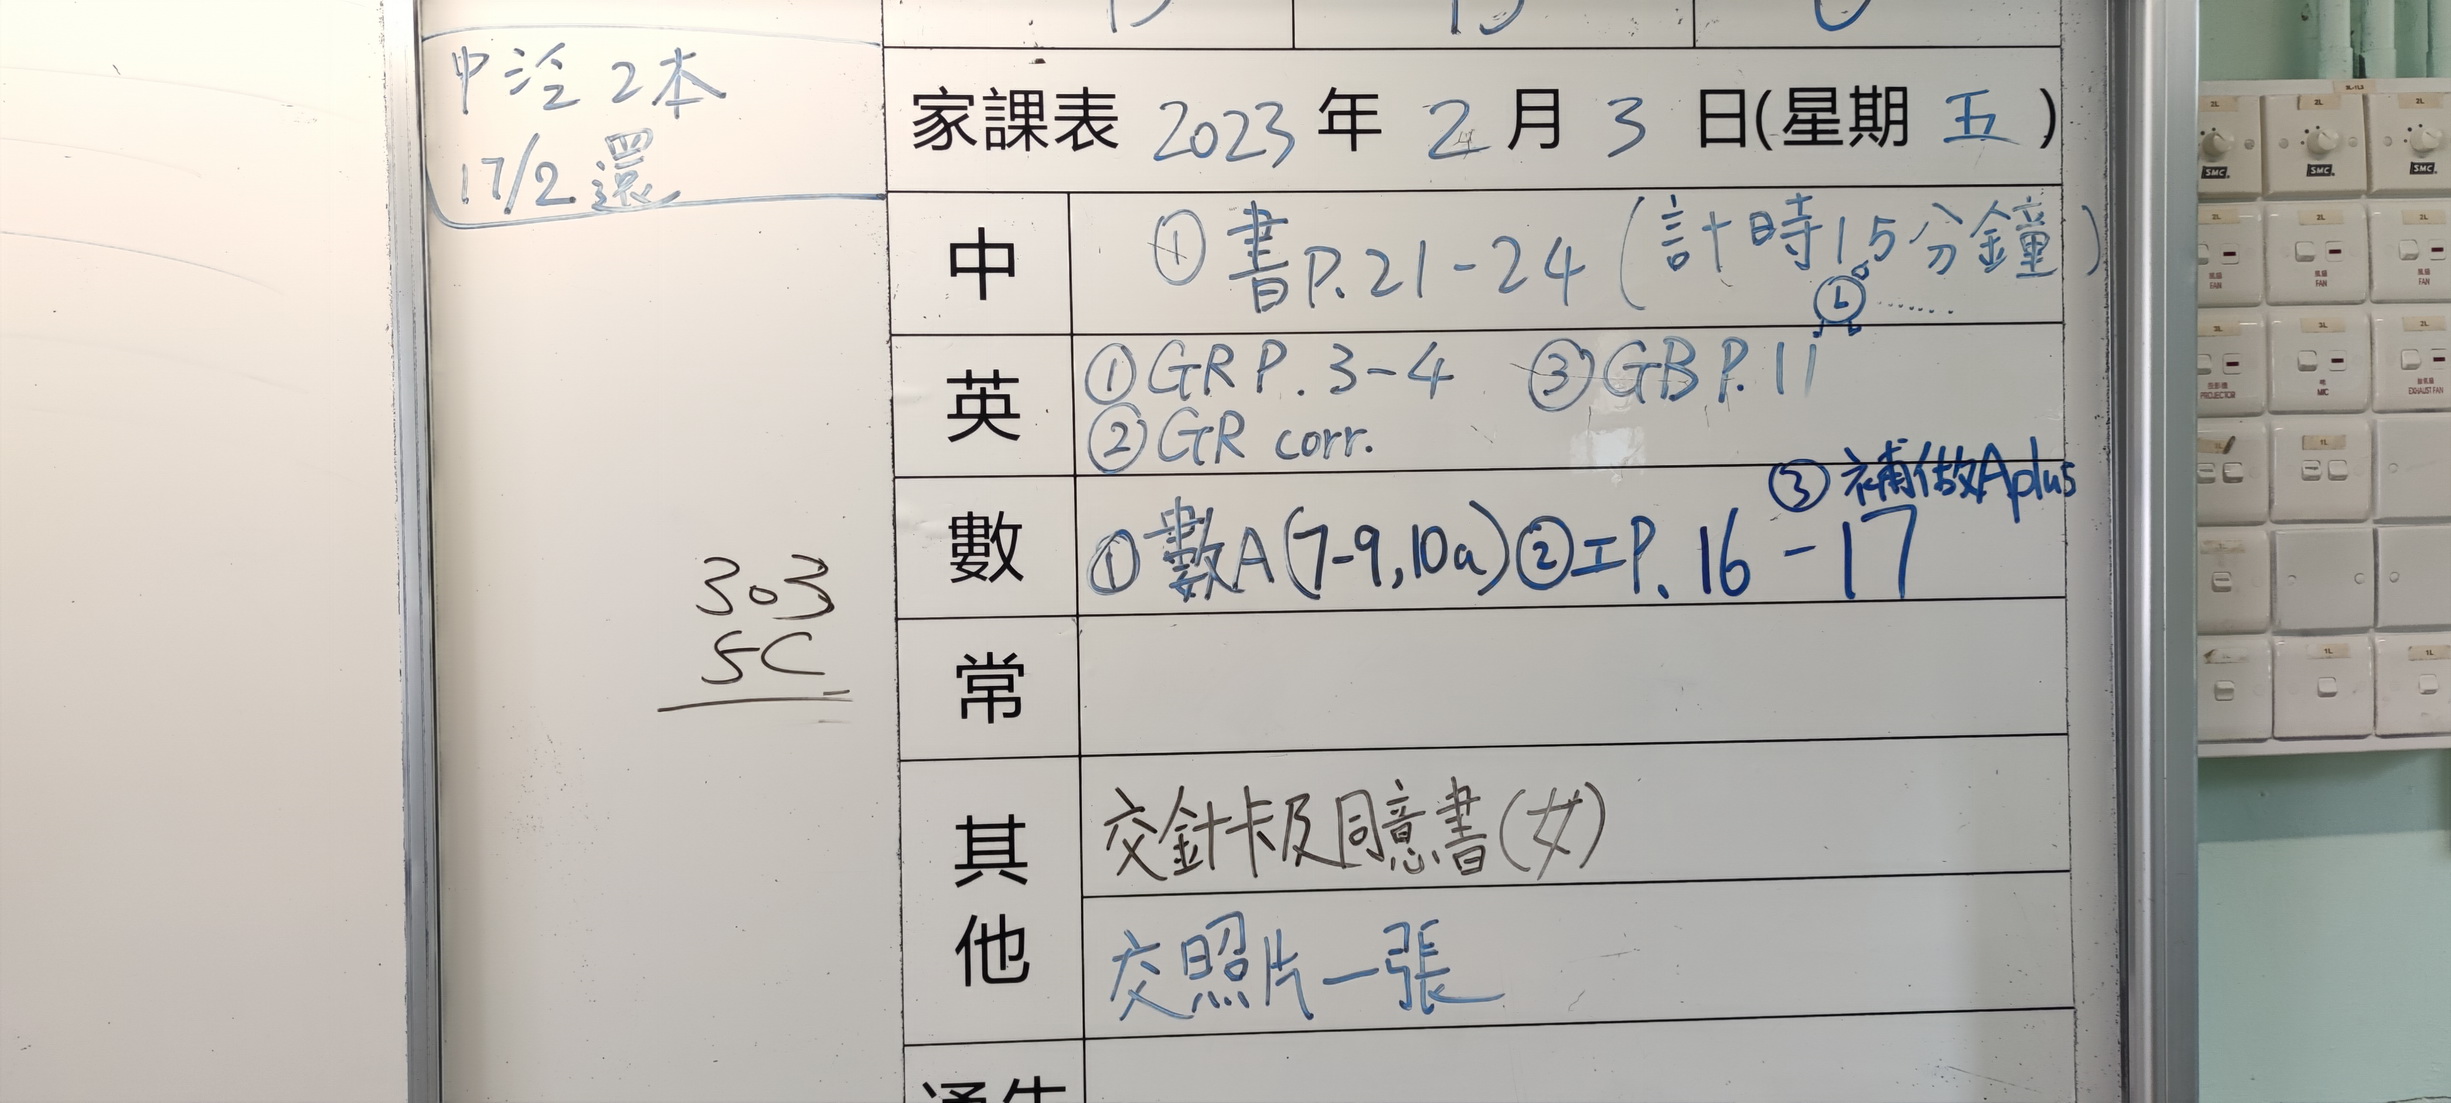 中泾2本
17/2 還
家課表 2023 年 2 月 3 日(星期 五 )
中 ①書P.21-24 (計時15分鐘)
英 ①GR P.3-4 ③GB P.11
②GR corr.
③補做Aplus
數 ①數A(7-9,10a)②工P.16-17
303
5C
常
其他 交針卡及同意書(女)
交照片一張
2L
2L
2L
SMC
SMC
SMC
2L
2L
2L
FAN
FAN
FAN
2L
PROJECTOR
MIC
EXHAUST FAN
1L
1L
1L